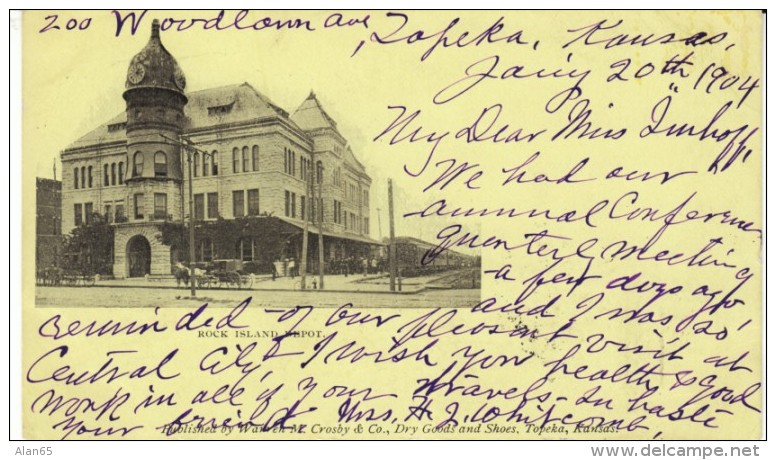 200 Woodlawn ave
, Topeka, Kansas,
Jany 20th 1904
My Dear Miss Imhoff,
We had our
annual Conference
Quarterly Meeting
a few days ago,
and I was so
reminded of our pleasant visit at
ROCK ISLAND DEPOT.
Central City, I wish you health & good
work in all of your travels - In haste
your friend Mrs. H. Whitcomb,
Published by Warren M. Crosby & Co., Dry Goods and Shoes, Topeka, Kansas.
Alan65
© www.delcampe.net